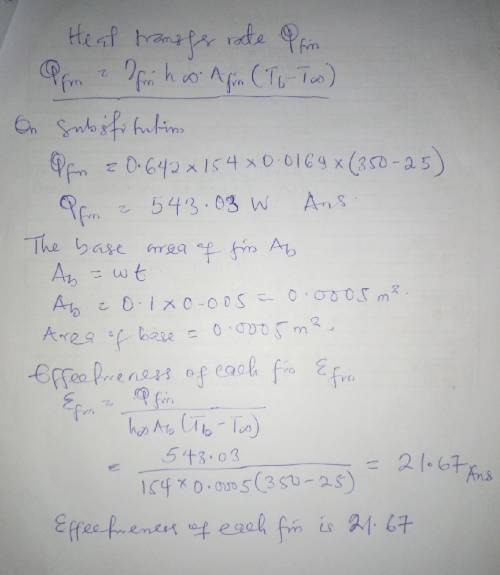 Heat transfer rate Qfin
Qfin = ηfin h∞ · Afin (Tb - T∞)
On substitution
Qfin = 0.642 × 154 × 0.0169 × (350 - 25)
Qfin = 543.03 W Ans.
The base area of fin Ab
Ab = wt
Ab = 0.1 × 0.005 = 0.0005 m².
Area of base = 0.0005 m².
Effectiveness of each fin Efin
Efin = Qfin / h∞ Ab (Tb - T∞)
= 543.03 / 154 × 0.0005 (350 - 25) = 21.67 Ans
Effectiveness of each fin is 21.67